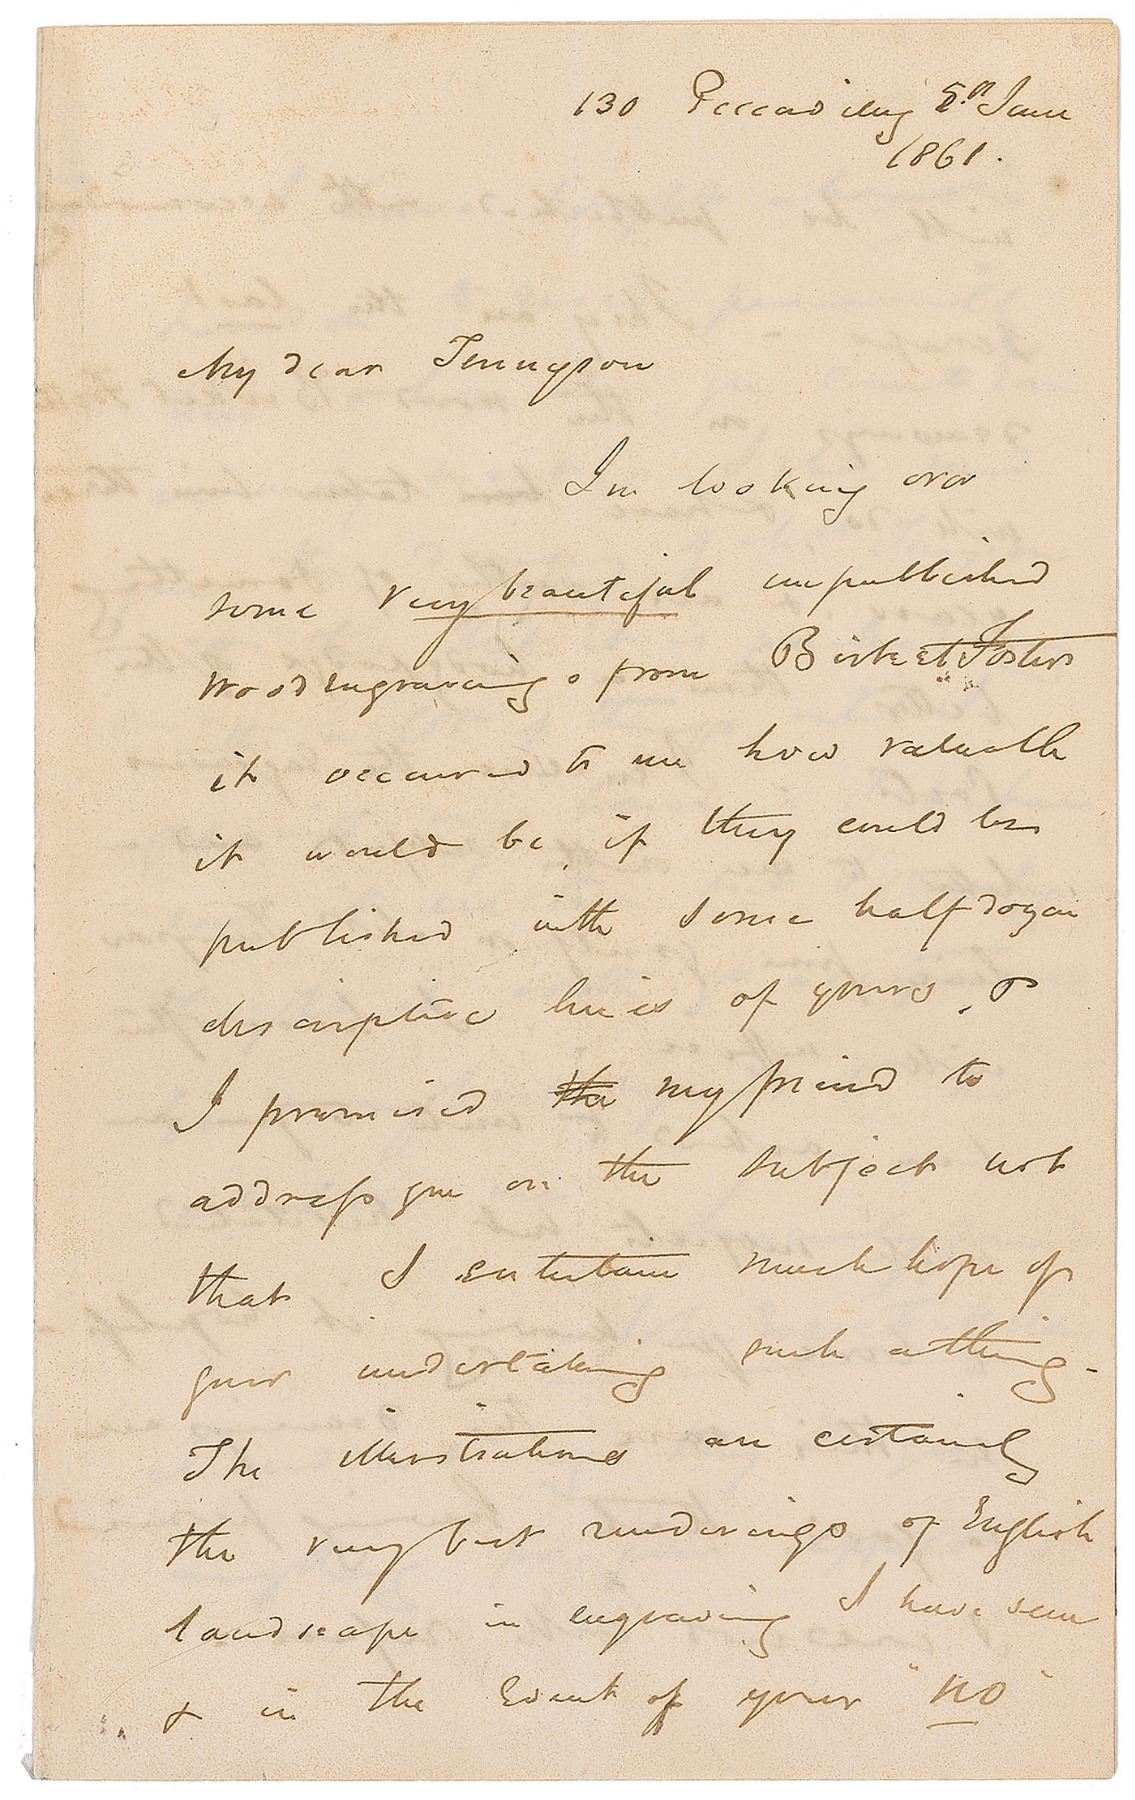 130 Piccadilly 5th June
1861.
My dear Tennyson
In looking over
some very beautiful unpublished
Wood engravings from Birket Fosters
it occurred to me how valuable
it would be if they could be
published with some half dozen
descriptive lines of yours, &
I promised the my friend to
address you on the subject not
that I entertain much hope of
your undertaking such a thing -
The illustrations are certainly
the very best renderings of English
landscape in engraving I have seen
& in the Event of your "no"